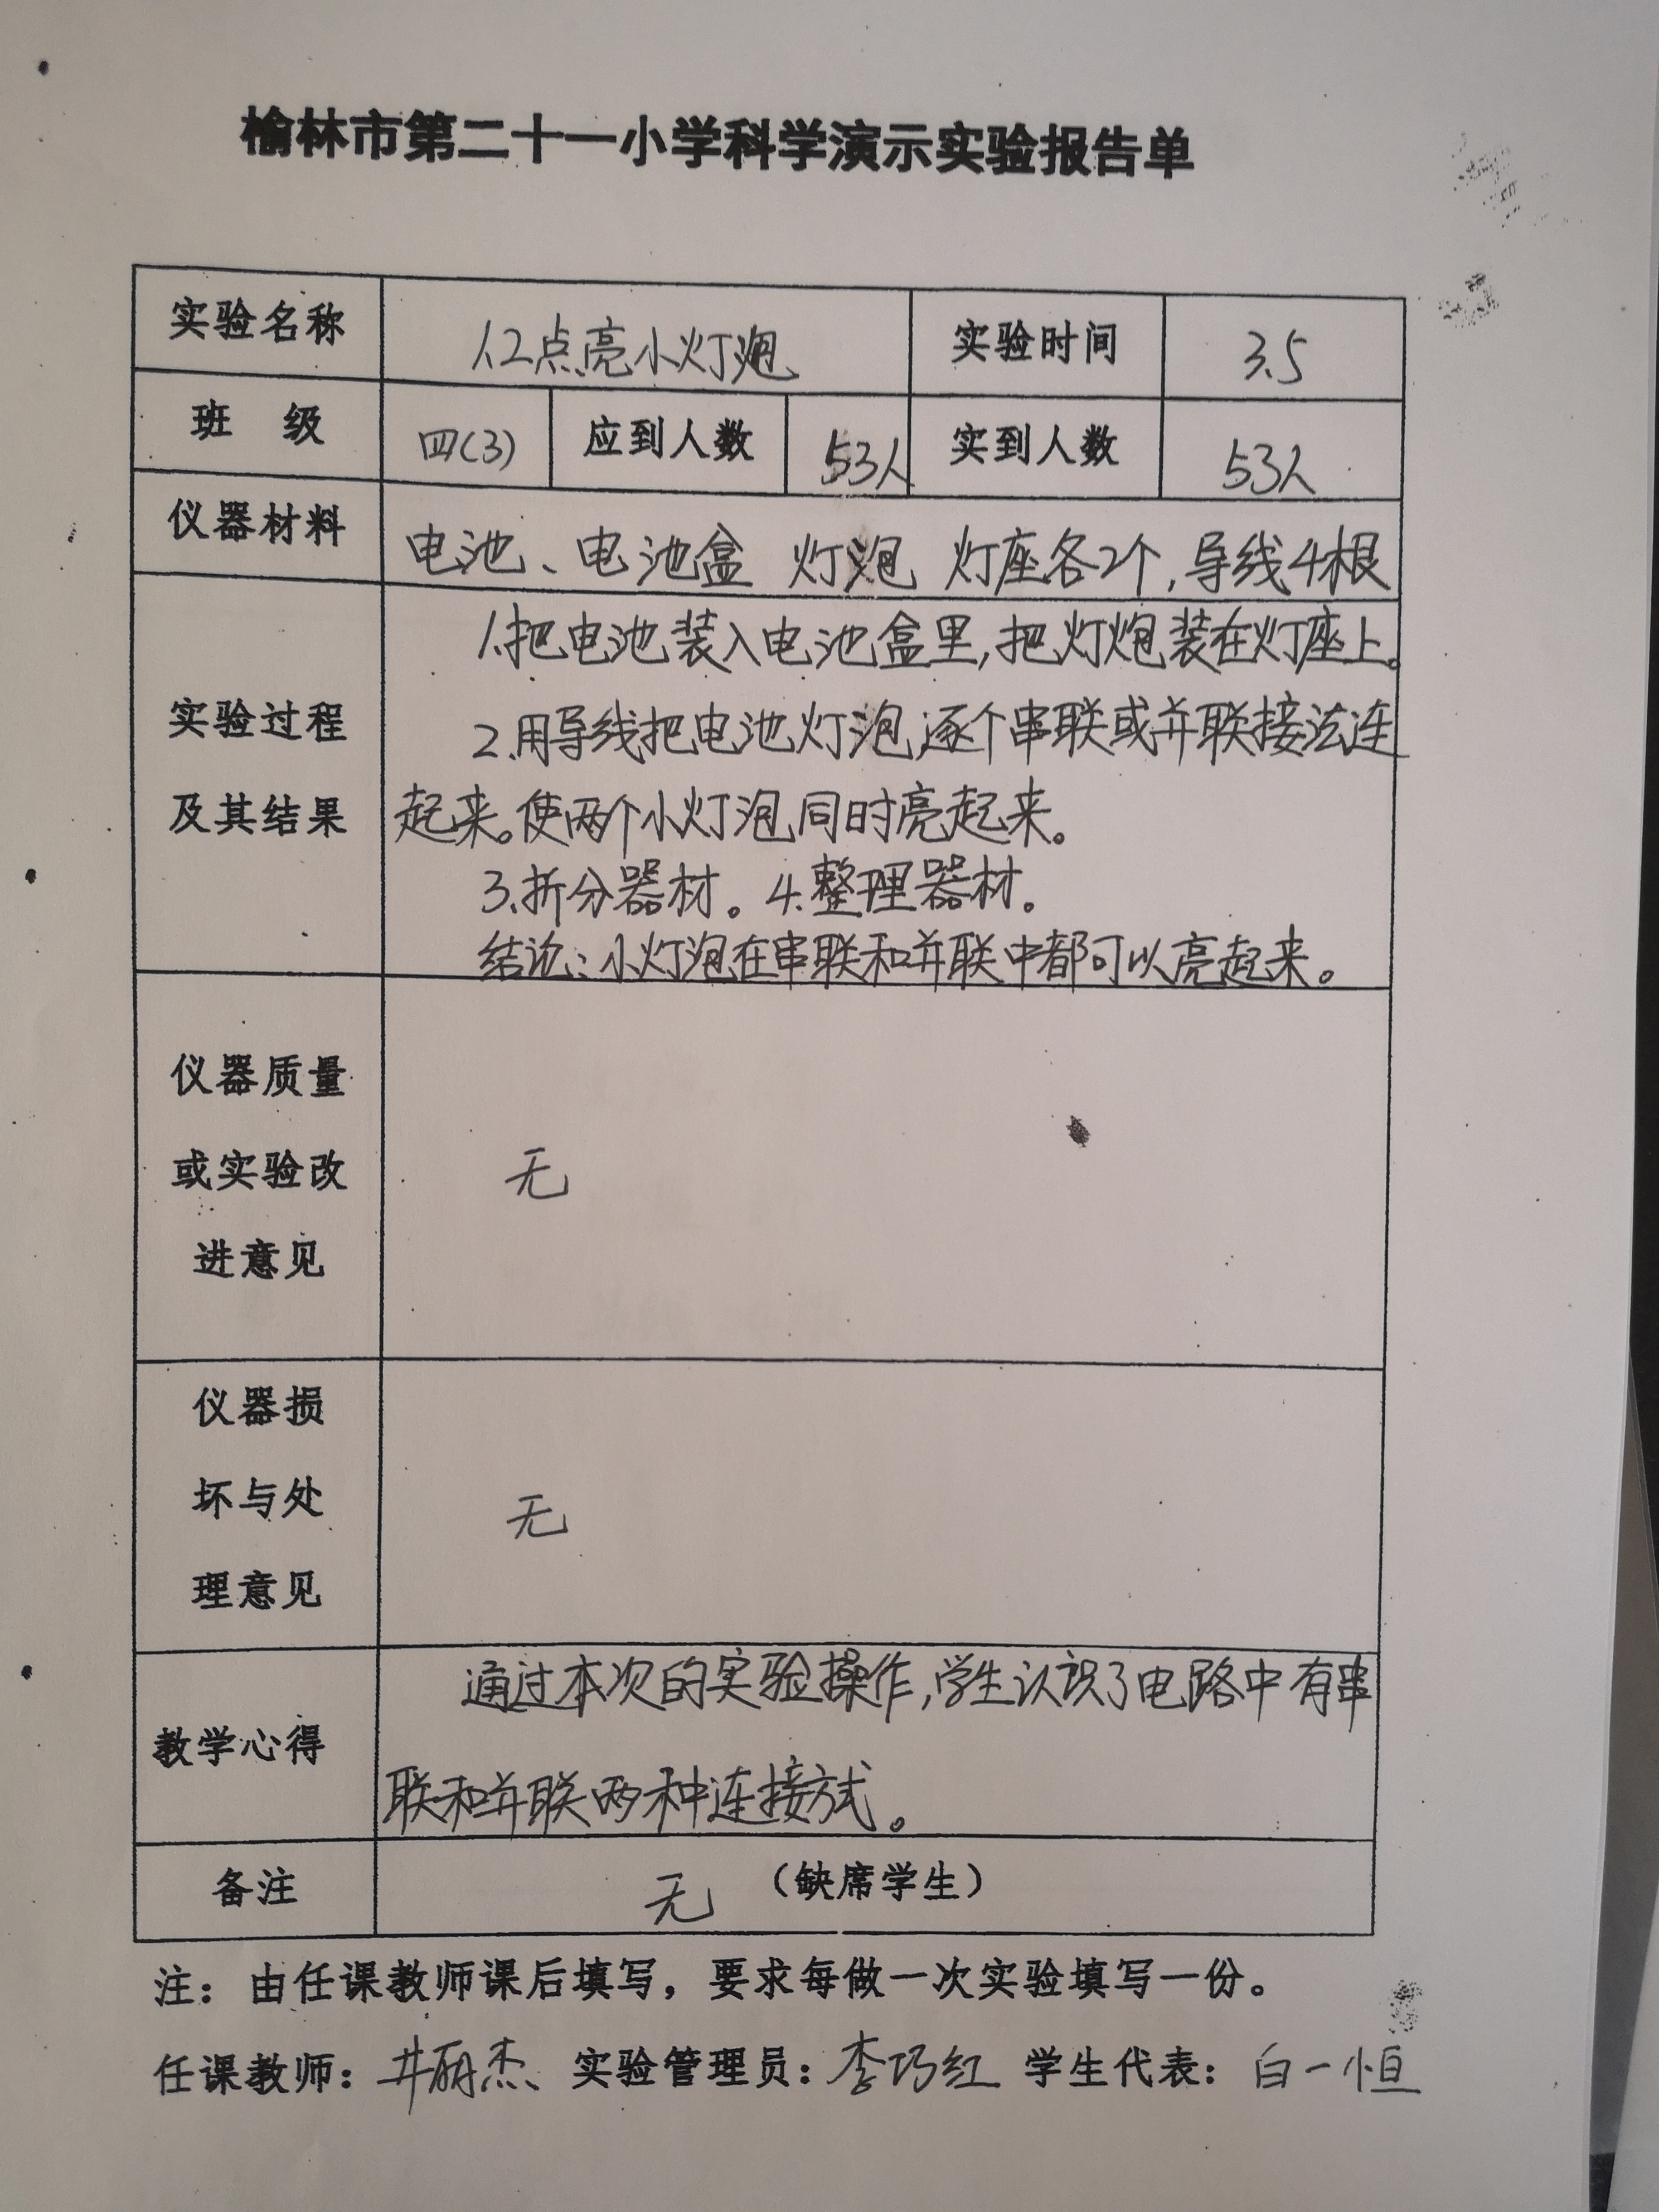 榆林市第二十一小学科学演示实验报告单
实验名称 1.2点亮小灯泡 实验时间 3.5
班 级 四(3) 应到人数 53人 实到人数 53人
仪器材料 电池、电池盒 灯泡 灯座各2个,导线4根
1.把电池装入电池盒里,把灯炮装在灯座上。
实验过程 2.用导线把电池灯泡逐个串联或并联接法连
及其结果 起来。使两个小灯泡同时亮起来。
3.折分器材。4.整理器材。
结论:小灯泡在串联和并联中都可以亮起来。
仪器质量
或实验改 无
进意见
仪器损
坏与处 无
理意见
通过本次的实验操作,学生认识了电路中有串
教学心得
联和并联两种连接方式。
备注 无 (缺席学生)
注：由任课教师课后填写，要求每做一次实验填写一份。
任课教师：井丽杰 实验管理员：李巧红 学生代表：白一恒